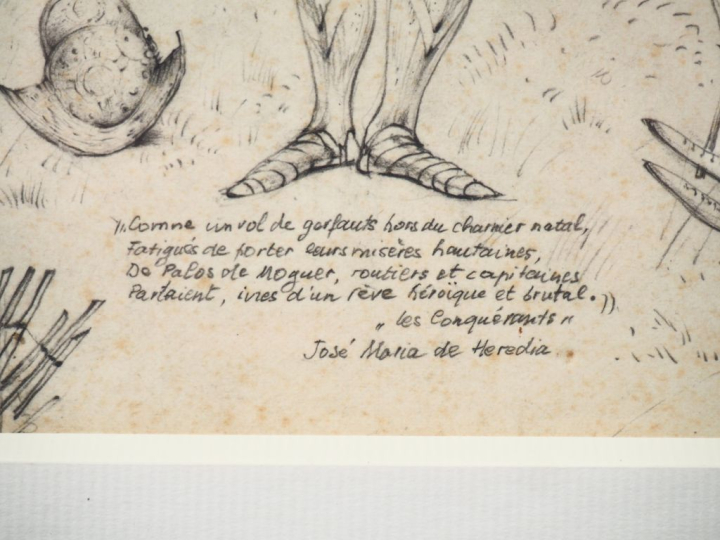 "Comme un vol de gerfauts hors du charnier natal,
Fatigués de porter leurs misères hautaines,
De Palos de Moguer, routiers et capitaines
Partaient, ivres d'un rêve héroïque et brutal. "
„ les Conquérants "
José Maria de Heredia